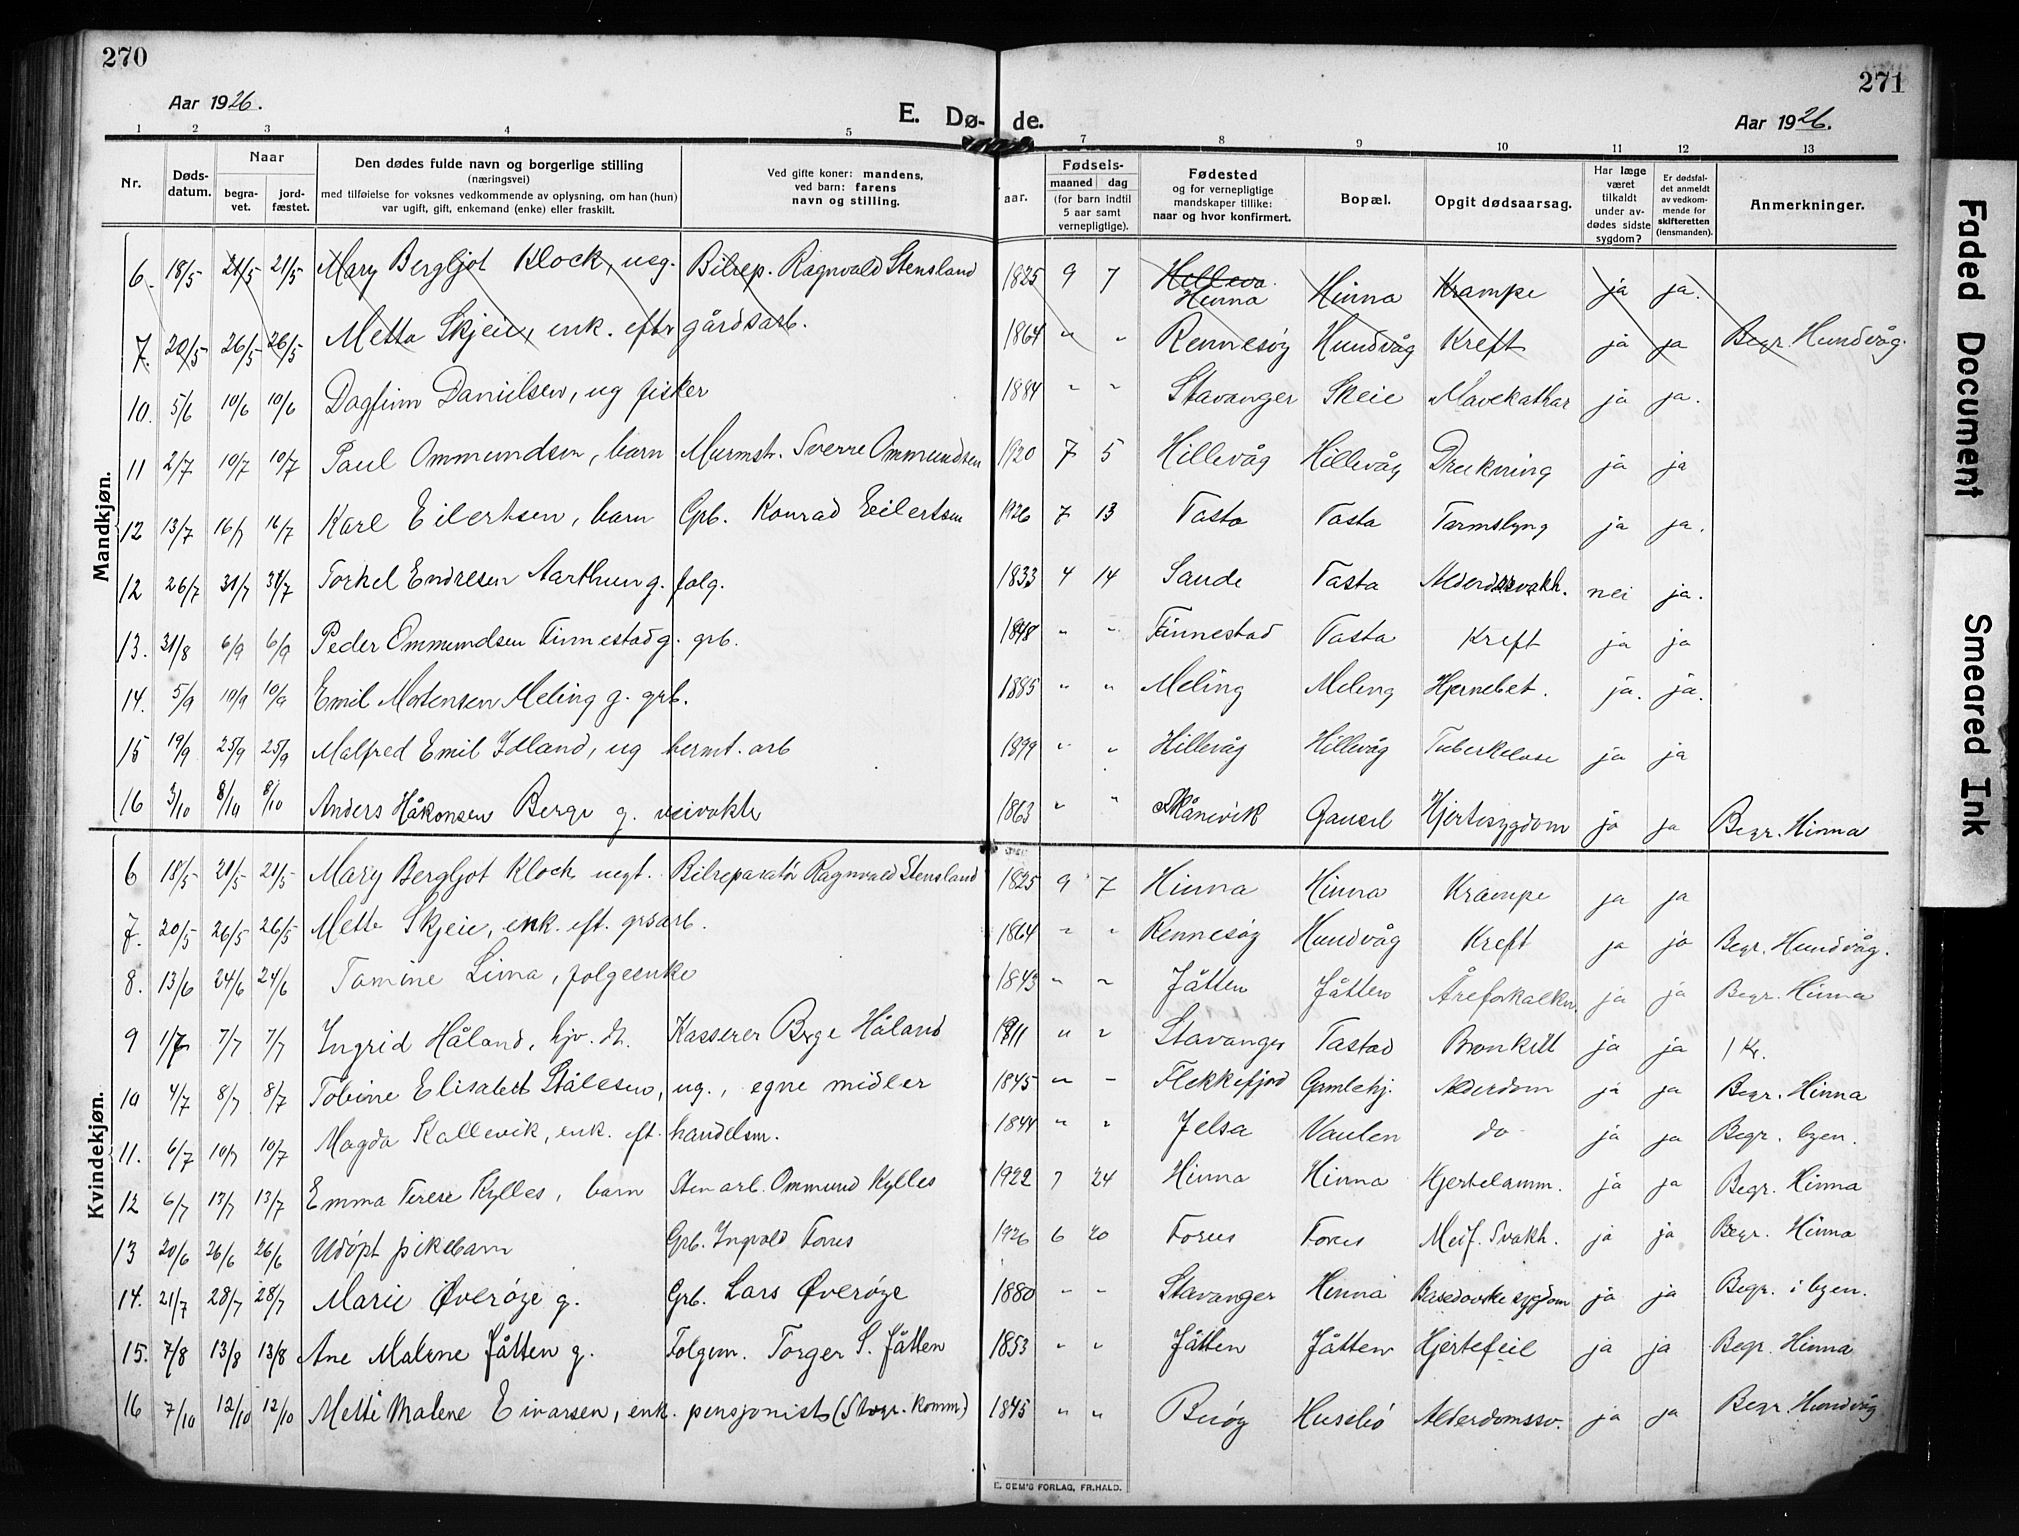 270
271
Aar 1926.
E. Dø- de.
Aar 1926.
1 2 3 4 5 7 8 9 10 11 12 13
Nr.
Døds-
datum.
Naar
begra-
vet.
jord-
fæstet.
Den dødes fulde navn og borgerlige stilling
(næringsvei)
med tilføielse for voksnes vedkommende av oplysning, om han (hun)
var ugift, gift, enkemand (enke) eller fraskilt.
Ved gifte koner: mandens,
ved barn: farens
navn og stilling.
Fødsels-
aar.
maaned dag
(for barn indtil
5 aar samt
vernepligtige).
Fødested
og for vernepligtige
mandskaper tillike:
naar og hvor konfirmert.
Bopæl.
Opgit dødsaarsag.
Har læge
været
tilkaldt
under av-
dødes sidste
sygdom?
Er dødsfal-
det anmeldt
av vedkom-
mende for
skifteretten
(lensmanden).
Anmerkninger.
Mandkjøn.
6. 18/5 21/5 21/5 Mary Bergljot Klock, ueg. Bilrep. Ragnvald Stensland 1825 9 7 Hilleva Hinna Hinna Krampe ja ja.
7. 20/5 26/5 26/5 Metta Skjeie, enk. eftr gårdsarb. 1864 " " Rennesøy Hundvåg Kreft ja ja Begr. Hundvåg.
10. 5/6 10/6 10/6 Dagfinn Danielsen, ug fisker 1884 " " Stavanger Skeie Mavekathar ja ja.
11 2/7 10/7 10/7 Paul Ommundsen, barn Murmstr. Sverre Ommundsen 1920 7 5 Hillevåg Hillevåg Drukning ja ja
12 13/7 16/7 16/7 Karl Eilertsen, barn Gpb. Konrad Eilertsen 1926 7 13 Tasta Tasta Tarmslyng ja ja.
12 26/7 31/7 31/7 Torkel Endresen Aarthun g. folg. 1833 4 14 Saude Tasta Alderdsvakh. nei ja.
13. 31/8 6/9 6/9 Peder Ommundsen Finnestad g. grb. 1848 " " Finnestad Tasta Kreft ja ja
14. 5/9 10/9 10/9 Emil Mortensen Meling g. grb. 1885 " " Meling Meling Hjernebet. ja. ja.
15 19/9 25/9 25/9 Malfred Emil Idland, ug hermt. arb 1899 " " Hillevåg Hillevåg Tuberkelose ja ja
16 3/10 8/10 8/10 Anders Håkonsen Berge g. veivakt 1863 " " Skånevik Gausel Hjertesygdom ja ja Begr. Hinna
Kvindekjøn.
6 18/5 21/5 21/5 Mary Bergljot Klock uegt. Bilreparatør Ragnvald Stensland 1825 9 7 Hinna Hinna Krampe ja ja
7. 20/5 26/5 26/5 Mette Skjeie, enk. eft. grsarb. 1864 " " Rennesøy Hundvåg Kreft ja ja Begr. Hundvåg.
8. 13/6 24/6 24/6 Tamine Lima, folgeenke 1843 " " Jåtten Jåtten Åreforkalkn. ja ja Begr. Hinna
9 1/7 7/7 7/7 Ingrid Håland, hjv. dt. Kasserer Berge Håland 1911 " " Stavanger Tastad Bronkitt ja ja 1 Kr.
10 4/7 8/7 8/7 Tobine Elisabet Stålesen, ug., egne midler 1845 " " Flekkefjord Gamlehj. Alderdom ja ja Begr. Hinna
11. 6/7 10/7 10/7 Magda Kallevik, enk. eft. handelsm. 1844 " " Jelsa Vaulen do ja ja Begr. byen.
12 6/7 13/7 13/7 Emma Terese Kylles, barn Stenarb. Ommund Kylles 1922 7 24 Hinna Hinna Hjertelamm. ja ja Begr. Hinna
13 20/6 26/6 26/6 Udøpt pikebarn Gpb. Ingvald Forus 1926 6 20 Forus Forus Meif. Svakh. ja ja Begr. Hinna
14. 21/7 28/7 28/7 Marie Øverøye g. Grb. Lars Øverøye 1880 " " Stavanger Hinna Basedowske sygdom ja ja Begr. i byen.
15. 7/8 13/8 13/8 Ane Malene Jåtten g. Folgem. Torger S. Jåtten 1853 " " Jåtten Jåtten Hjertefeil ja ja Begr. Hinna
16 7/10 12/10 12/10 Mette Malene Eivarsen, enk. pensjonist (Stvgr. Komm.) 1845 " " Buøy Husebø Alderdomssv. ja ja Begr. Hundvåg
E. SEM'S FORLAG, FR.HALD.
Faded Document
Smeared Ink